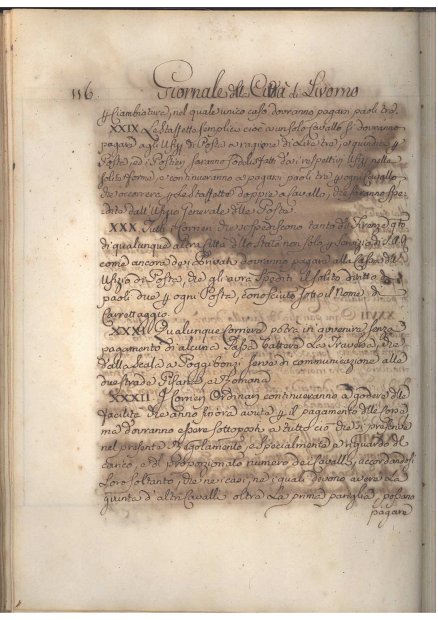 116 Giornale della Città di Livorno
p Cambiature, nel quale unico caso dovranno pagarsi paoli tre.
XXIX Le Staffette semplici cioè a un solo Cavallo si dovranno
pagare agli Ufizj di Posta a ragione di Lire tre, e quindi p
Poste, ed i Postieri saranno sodisfatti dai respettivi Ufizj nelle
solite forme, e continueranno a pagarsi paoli tre p ogni Cavallo
che occorrerà p le Staffette doppie a Cavallo, che saranno spe-
dite dall'Ufizio Generale delle Poste
XXX Tutti i Corrieri che si spediscono tanto da Firenze che da
di qualunque altra Città dello Stato non solo p servizio di S.A.R.
come ancora dei Privati dovranno pagare alla Cassa dell'
Ufizio di Posta, che gli avrà spediti il solito diritto di
paoli due p ogni Posta, conosciuto sotto il Nome di
Carrettaggio.
XXXI Qualunque Corriere potrà in avvenire senza
pagamento di alcuna Tassa battere La Traversa, che
dalla Scala a Poggibonzi serve di communicazione alle
due strade Pisana, e Romana
XXXII I Corrieri Ordinari continueranno a godere delle
facilità che anno finora avuta p il pagamento delle
ma dovranno essere sottoposti a tutto ciò che si prescrive
nel presente Regolamento, e specialmente a riguardo del
carico, e al proporzionato numero dei Cavalli, accordandosi
Loro soltanto, che ne' casi, ne' quali devono avere la
giunta d'altri Cavalli oltre La prima pariglia, possano
pagare